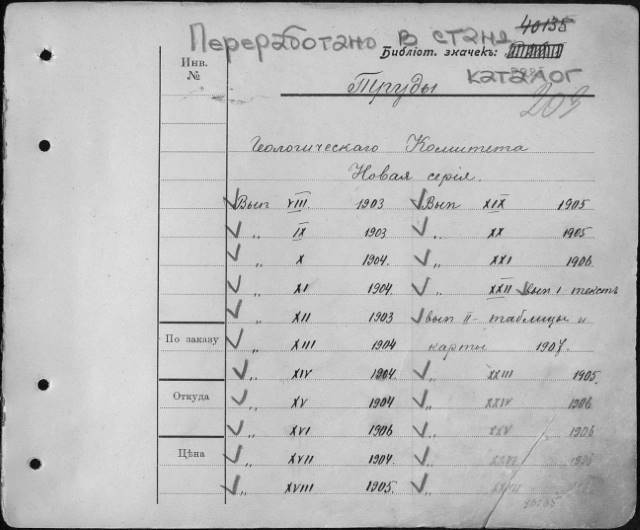 40135
Переработано в станд
Библіот. значекъ:
каталог
Инв.
№
Труды
203
Геологическаго Комитета
Новая серія.
Вып VIII. 1903 Вып XIX 1905
„ IX 1903 „ XX 1905
„ X 1904. „ XXI 1906
„ XI 1904. „ XXII вып I текстъ
„ XII 1903 вып II - таблицы и
По заказу
„ XIII 1904 карты 1907.
„ XIV 1904. „ XXIII 1905.
Откуда
„ XV 1904 „ XXIV 1906
„ XVI 1906 „ XXV 1906
Цѣна
„ XVII 1904. „ XXVI
„ XVIII 1905. „